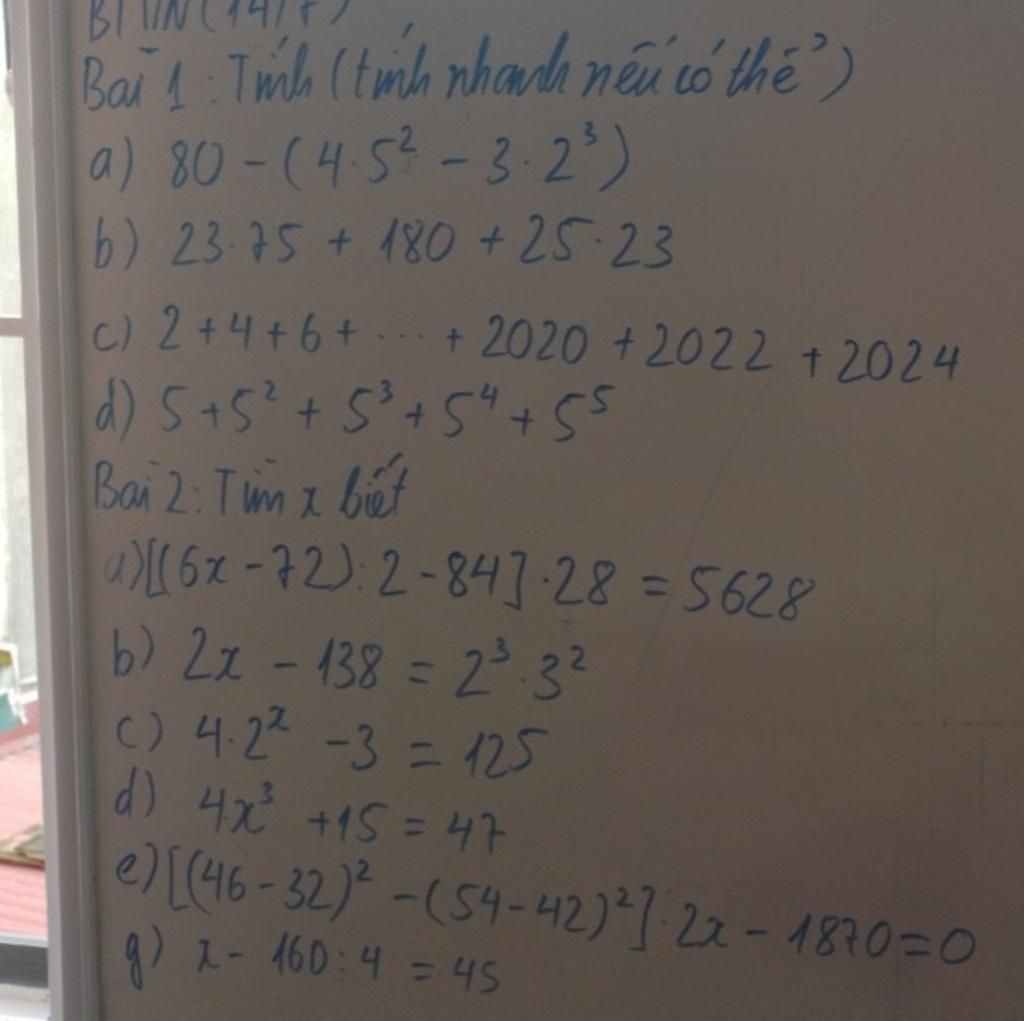 BTVN (14/7)
Bài 1: Tính (tính nhanh nếu có thể)
a) 80 - (4·5² - 3·2³)
b) 23·75 + 180 + 25·23
c) 2 + 4 + 6 + ... + 2020 + 2022 + 2024
d) 5 + 5² + 5³ + 5⁴ + 5⁵
Bài 2: Tìm x biết
a) [(6x - 72) : 2 - 84] · 28 = 5628
b) 2x - 138 = 2³·3²
c) 4·2ˣ - 3 = 125
d) 4x³ + 15 = 47
e) [(46 - 32)² - (54 - 42)²] · 2x - 1870 = 0
g) x - 160 : 4 = 45